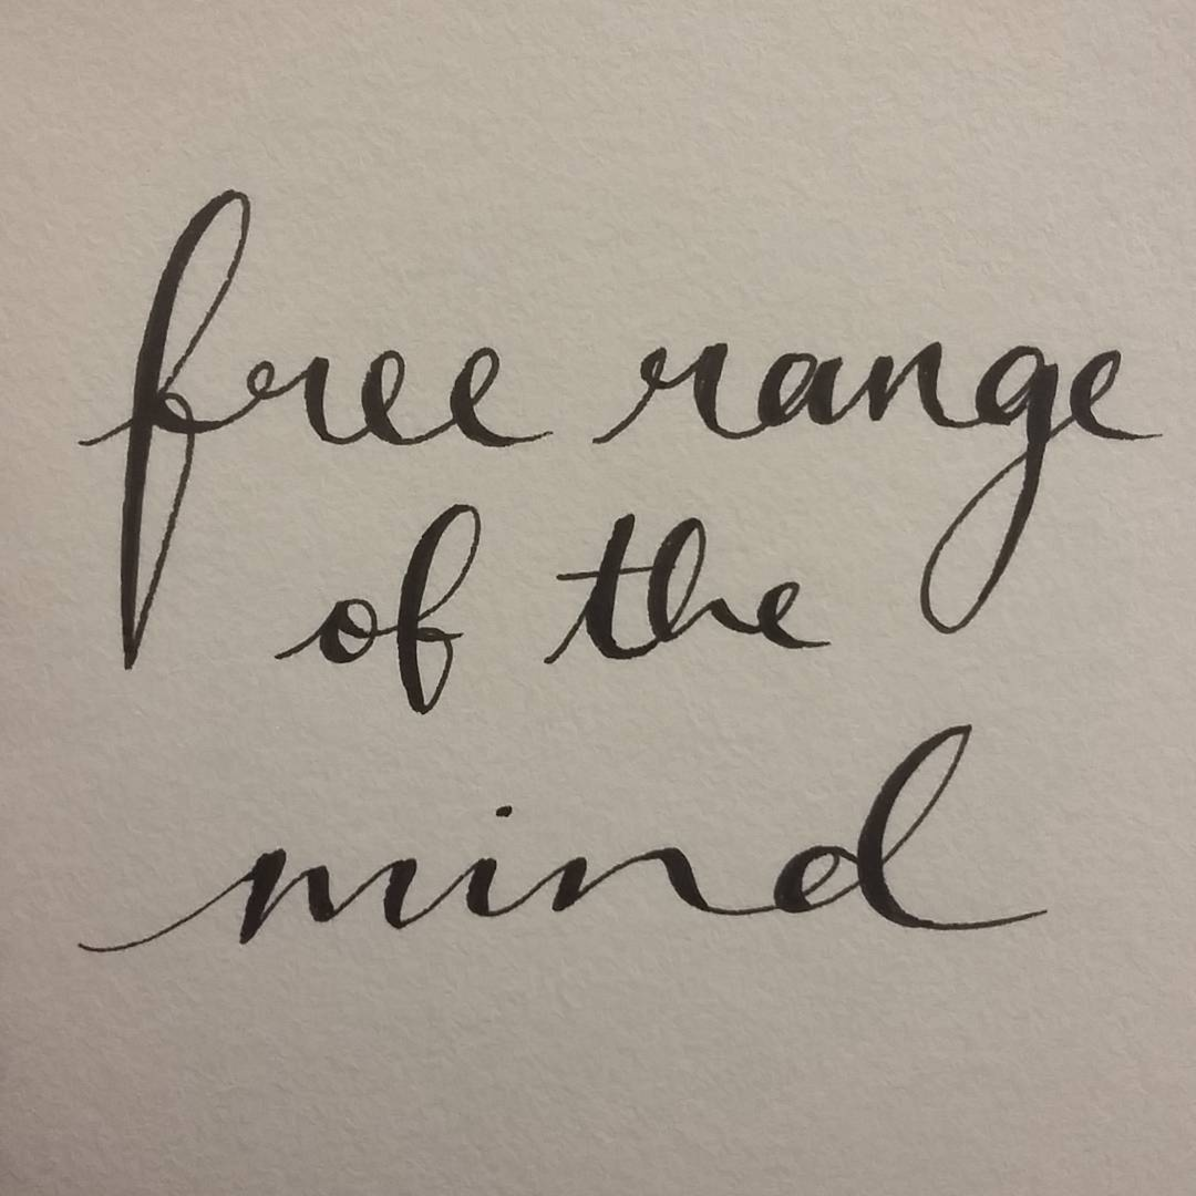 free range
of the
mind